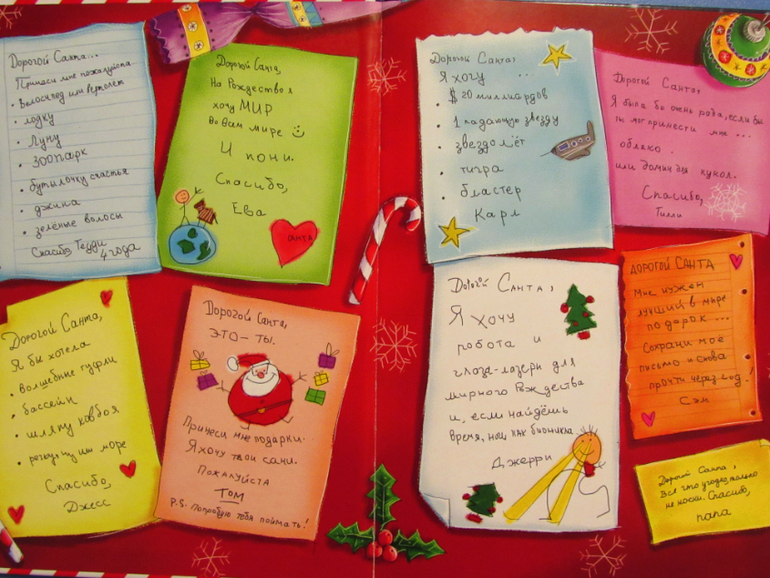 Дорогой Санта...
Принеси мне пожалуйста
• велосипед или вертолёт
• лодку
• Луну
• зоопарк
• бутылочку счастья
• джина
• зелёные волосы
Спасибо, Тедди
4 года
Дорогой Санта,
На Рождество я
хочу МИР
во всём мире
И пони.
Спасибо,
Ева
САНТА
Дорогой Санта,
Я бы хотела
• волшебные туфли
• бассейн
• шляпу ковбоя
•
Спасибо,
Джесс
Дорогой Санта,
ЭТО – ТЫ.
Принеси мне подарки.
Я хочу твои сани.
Пожалуйста
ТОМ
P.S. Попробую тебя поймать!
Дорогой Санта!
Я хочу ...
• $20 миллиардов
• 1 падающую звезду
• звездолёт
• тигра
• бластер
Карл
Дорогой Санта,
Я была бы очень рада, если бы
ты мог принести мне ...
облако
или домик для кукол.
Спасибо,
Тилли
Дорогой Санта,
Я хочу
робота и
глаза-лазеры для
мирного Рождества
и, если найдёшь
время, ног как бионика
Джерри
ДОРОГОЙ САНТА
Мне нужен
лучший в мире
подарок...
Сохрани моё
письмо и снова
прочти через год!
Сэм
Дорогой Санта,
Всё что угодно, только
не носки. Спасибо,
папа